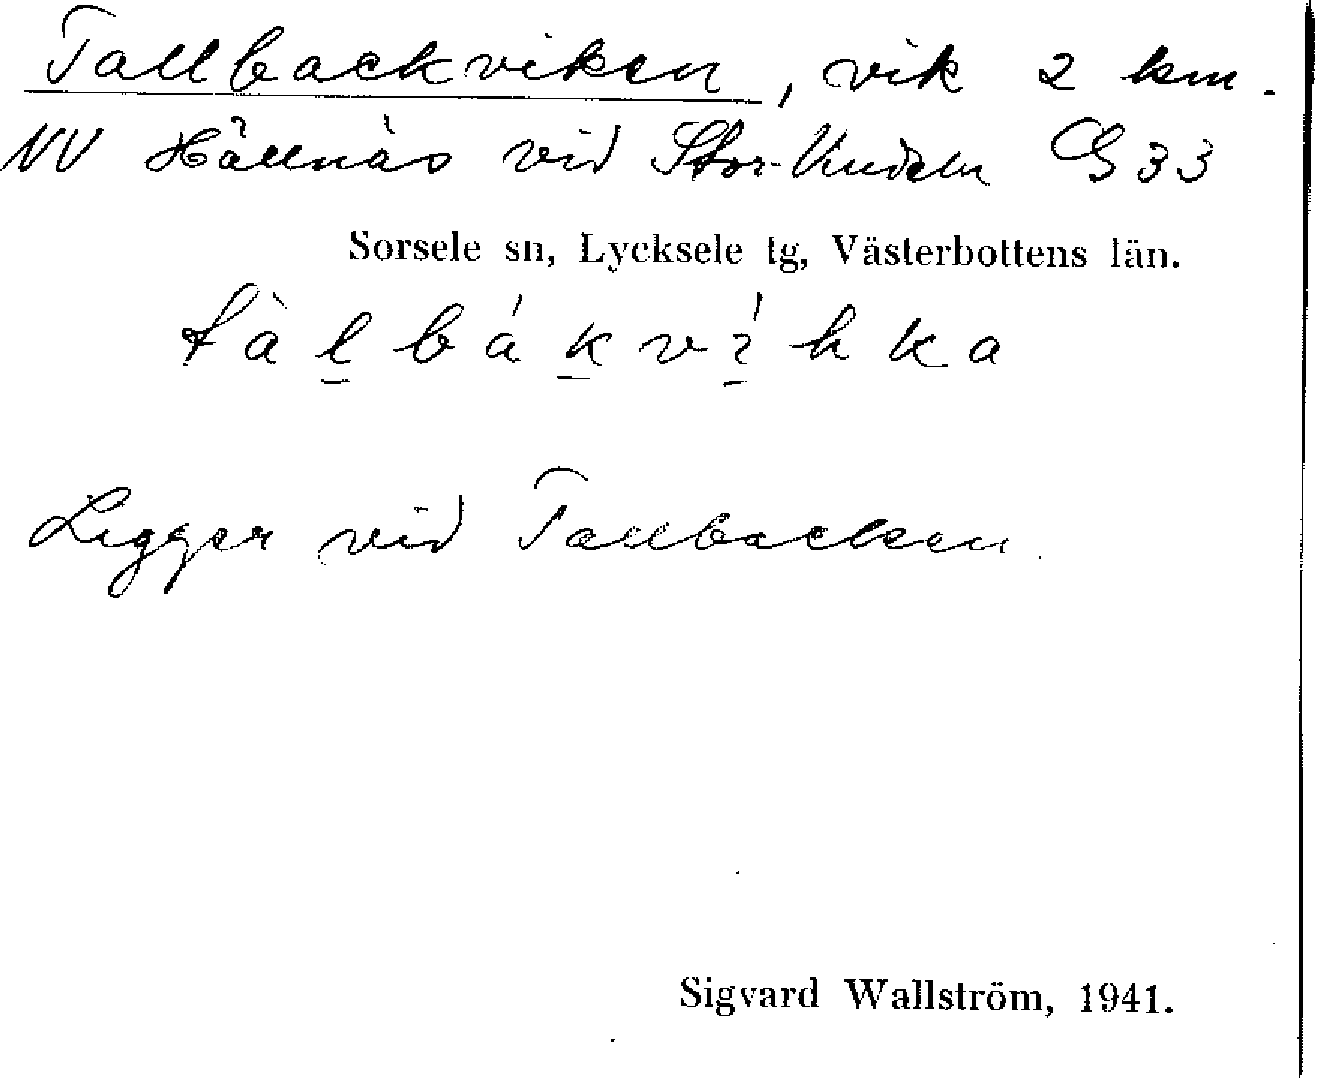 Tallbackviken, vik 2 km.
NV Hällnäs vid Stor-Vindeln G 33
Sorsele sn, Lycksele tg, Västerbottens län.
Ligger vid Tallbacken.
Sigvard Wallström, 1941.